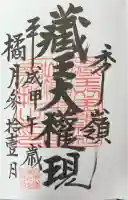 秀嶺
藏王大権現
平成甲午歳
橘月参拾壹日